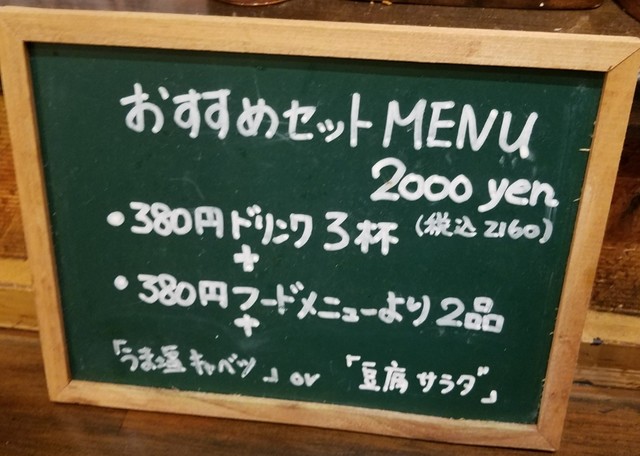 おすすめセットMENU
2000 yen
•380円ドリンク3杯 (税込2160)
+
•380円フードメニューより2品
+
「うま塩キャベツ」or 「豆腐サラダ」